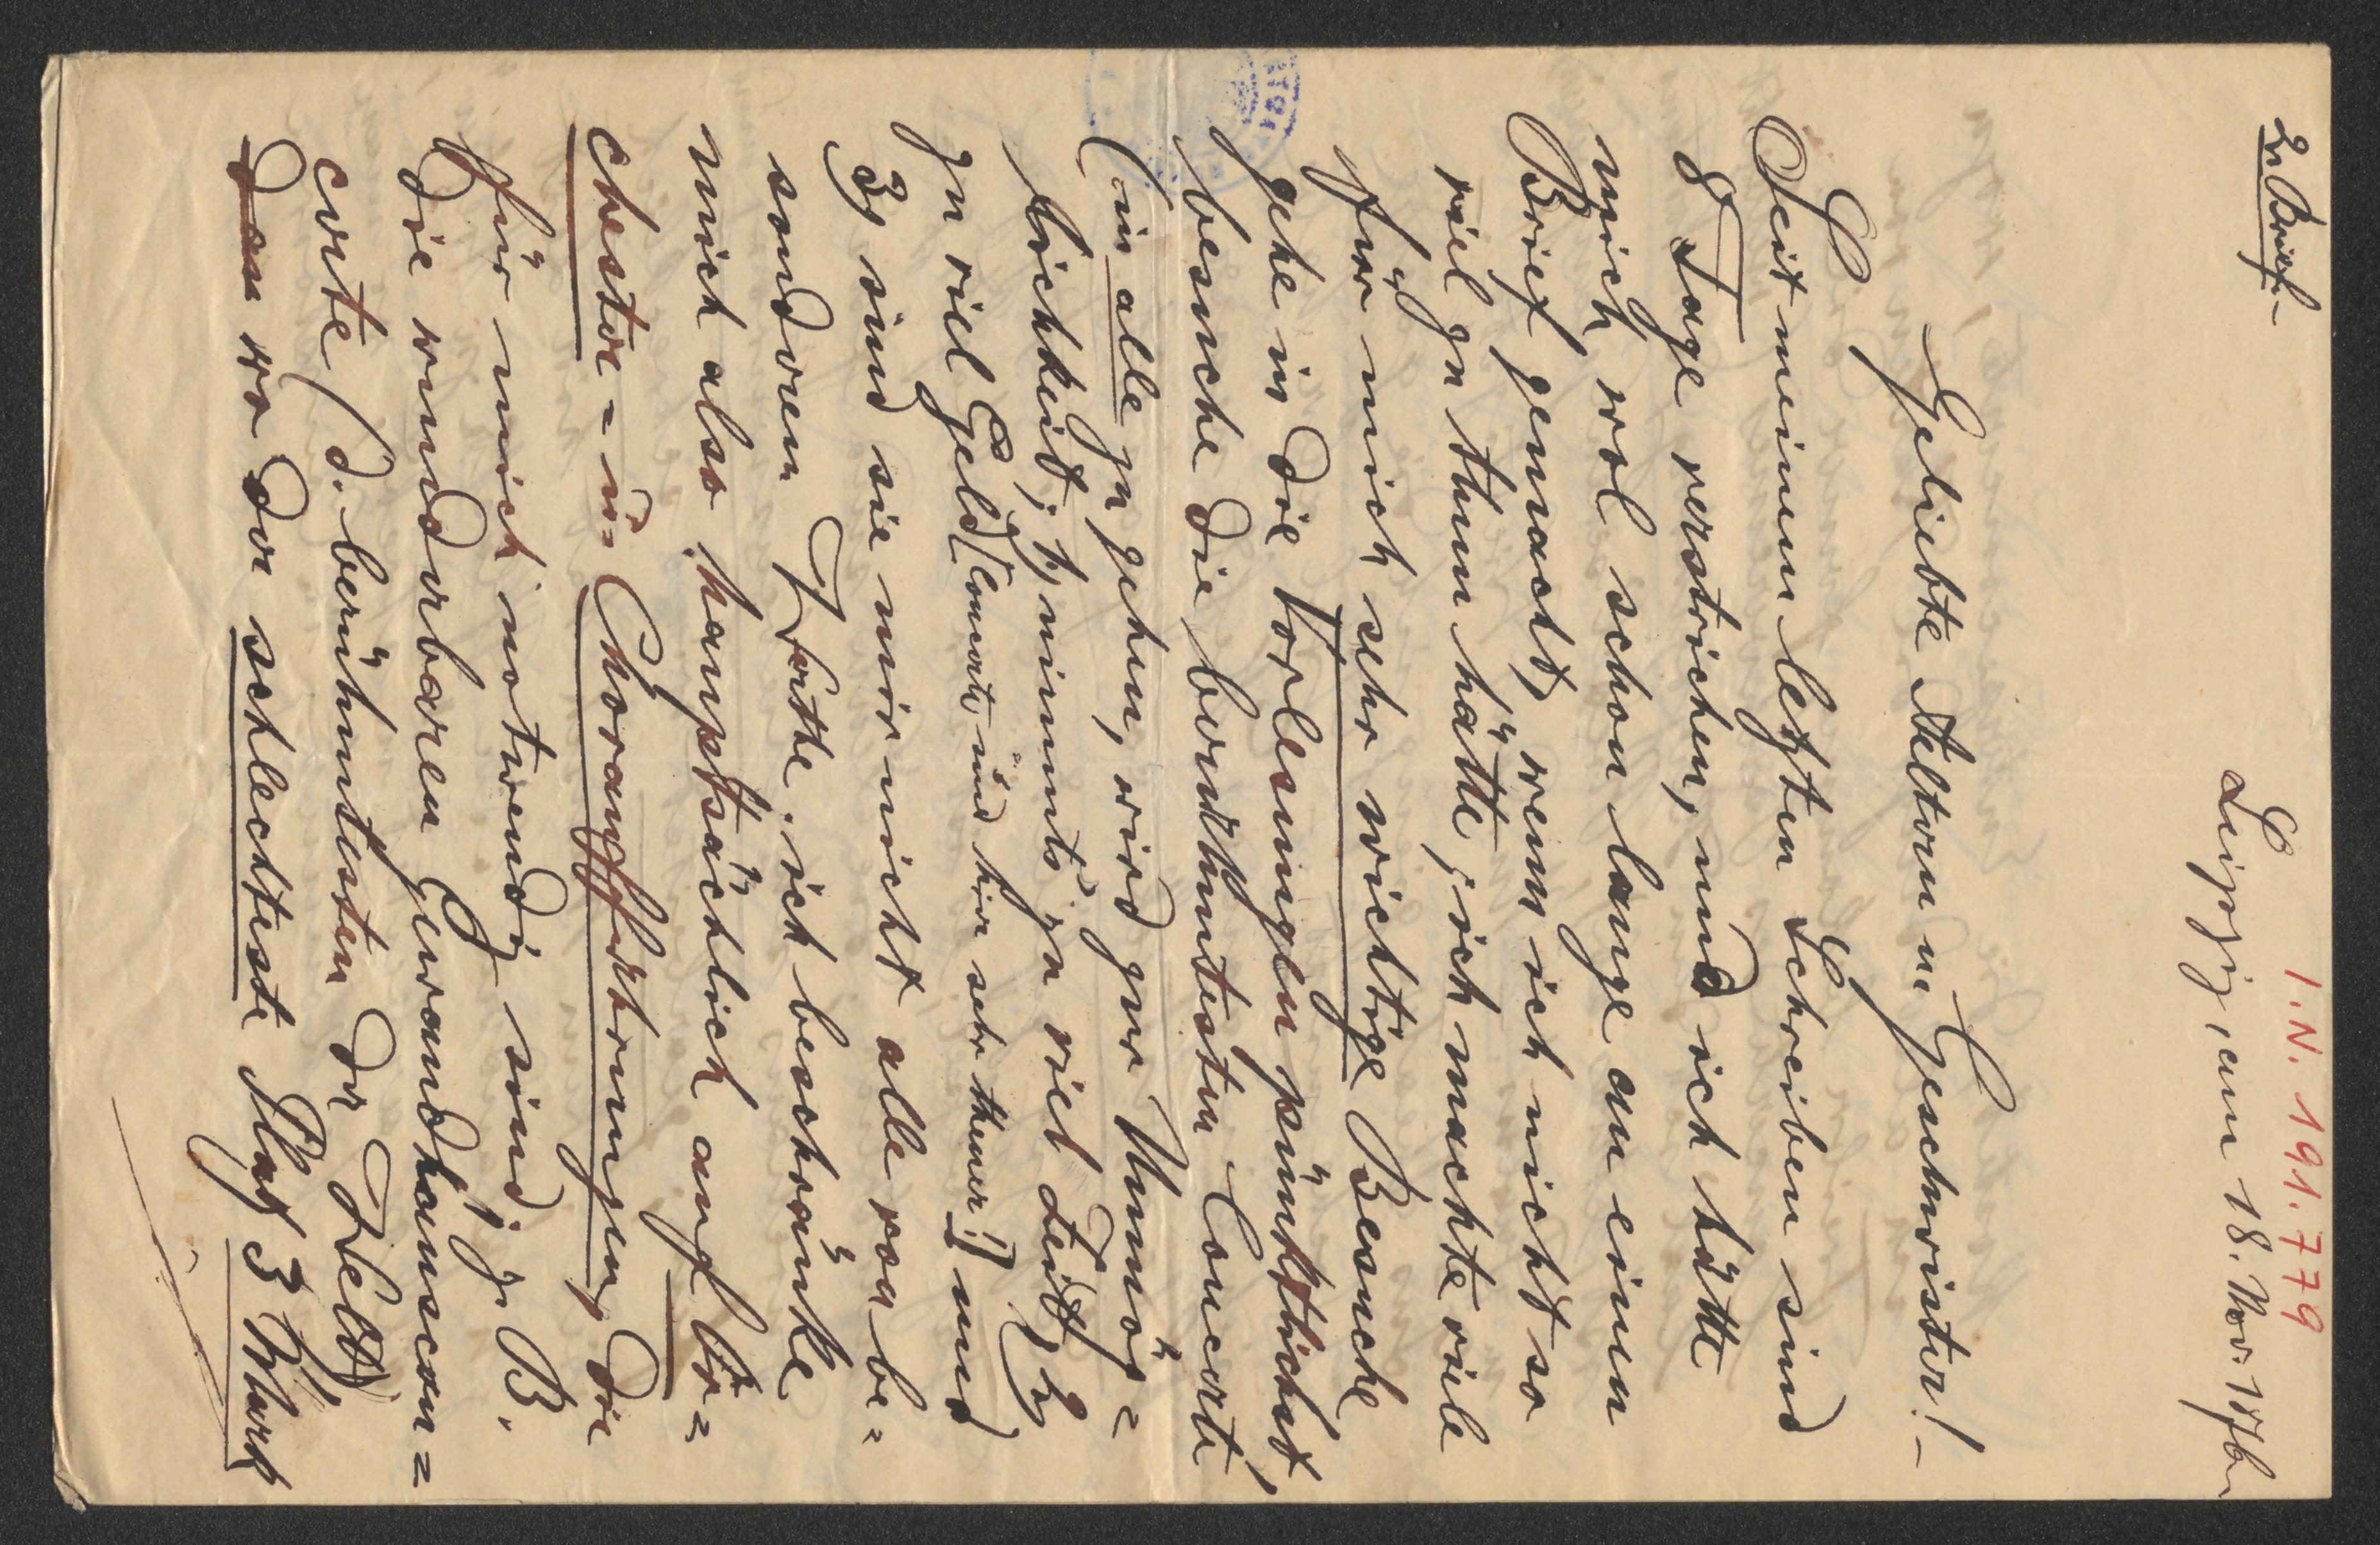 I.N. 191.779
2. Brief.
Leipzig, am 18. Nov. 1876
Geliebte Aeltern u. Geschwister! –
Seit meinem letzten Schreiben sind
8 Tage verstrichen, und ich hätte
mich wol schon lange an einen
Brief gemacht, wenn ich nicht so
viel zu thun hätte; ich machte viele
für mich sehr wichtige Besuche
gehe in die Vorlesungen pünktlichst,
besuche die berühmtesten Concerte
(in alle zu gehen, wird zur Unmög=
lichkeit; 1) nimmts zu viel Zeit, 2)
zu viel Geld [Concerte sind hier sehr theuer!] und
3) sind sie mir nicht alle von be=
sonderem Werthe; ich beschränke
mich also hauptsächlich auf Or=
chester= u. Choraufführungen, die
für mich notwendig sind; z. B.
die wunderbaren Gewandhauscon=
certe (d. berühmtesten der Welt)
wo der schlechteste Platz 3 Mark